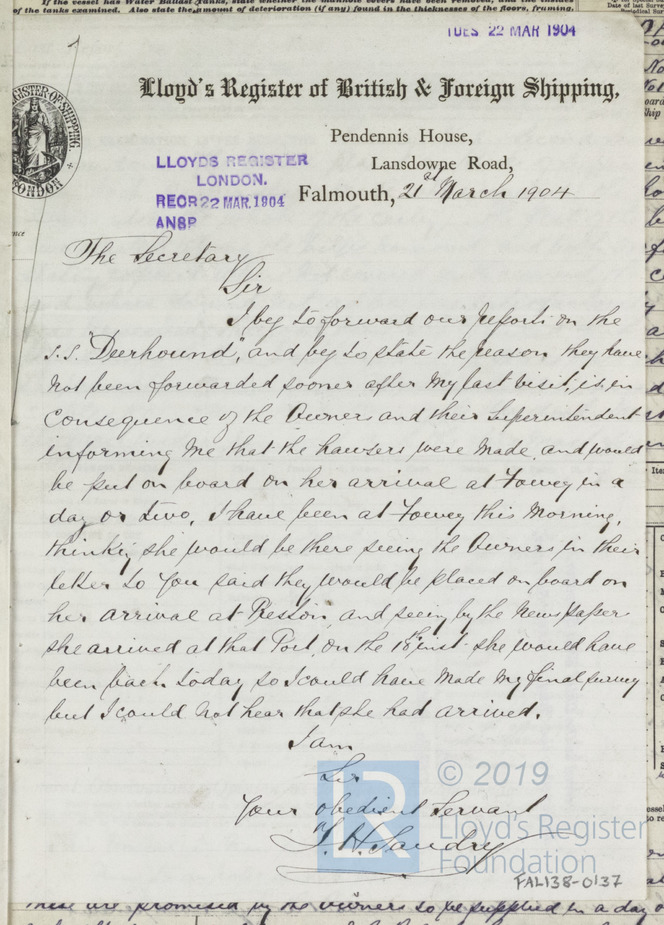 If the vessel has Water Ballast Tanks, state whether the manhole covers have been removed, and the insides
of the tanks examined. Also state the amount of deterioration (if any) found in the thicknesses of the floors, framing,
TUES 22 MAR 1904
Lloyd's Register of British & Foreign Shipping,
REGISTER OF SHIPPING
LONDON
Pendennis House,
Lansdowne Road,
LLOYDS REGISTER
LONDON.
RECR 22 MAR. 1904
ANSP
Falmouth, 21st March 1904
The Secretary
Sir
I beg to forward our reports on the
s.s. "Deerhound", and beg to state the reason they have
not been forwarded sooner after my last visit, is, in
consequence of the Owners and their Superintendent
informing me that the hawsers were made, and would
be put on board on her arrival at Fowey in a
day or two, I have been at Fowey this morning,
thinking she would be there seeing the Owners in their
letter to you said they would be placed on board on
her arrival at Preston, and seeing by the News paper
she arrived at that Port, on the 18th inst. she would have
been back today so I could have made my final survey
but I could not hear that she had arrived.
I am
Sir
Your obedient Servant
J. H. Sandry
LR
© 2019
Lloyd's Register
Foundation
FAL138-0137
These are promised by the owners to be supplied in a day or